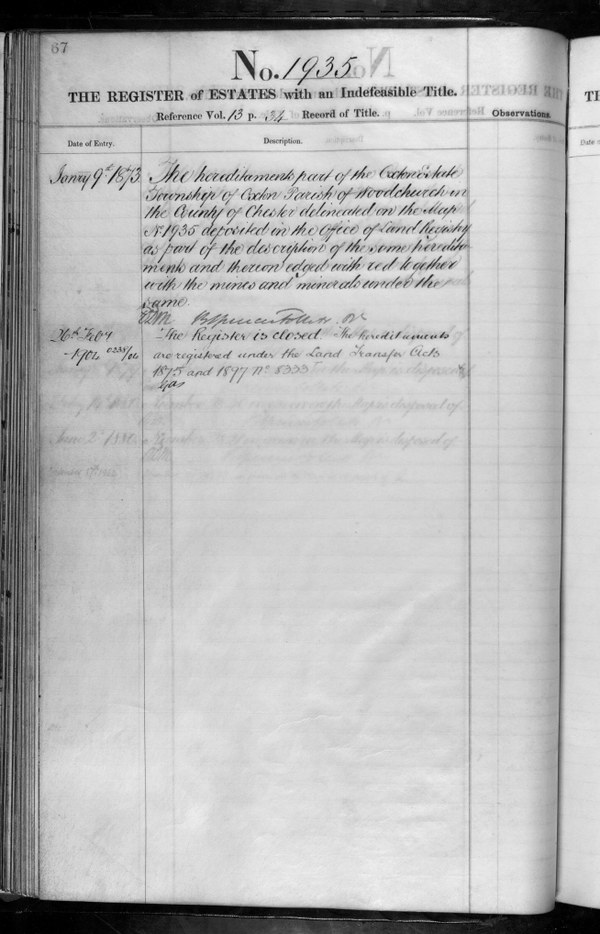 67
No. 1935
THE REGISTER of ESTATES with an Indefeasible Title.
Reference Vol. 13 p. 34 Record of Title.
Observations.
Date of Entry.
Description.
Janry 9th 1873
The hereditaments part of the Oxton Estate
Township of Oxton Parish of Woodchurch in
the County of Chester delineated on the Map
No 1935 deposited in the Office of Land Registry
as part of the description of the same heredita-
ments and thereon edged with red together
with the mines and minerals under the
same.
The Register is closed. The hereditaments
1902
are registered under the Land Transfer Acts
1875 and 1897 No 8333